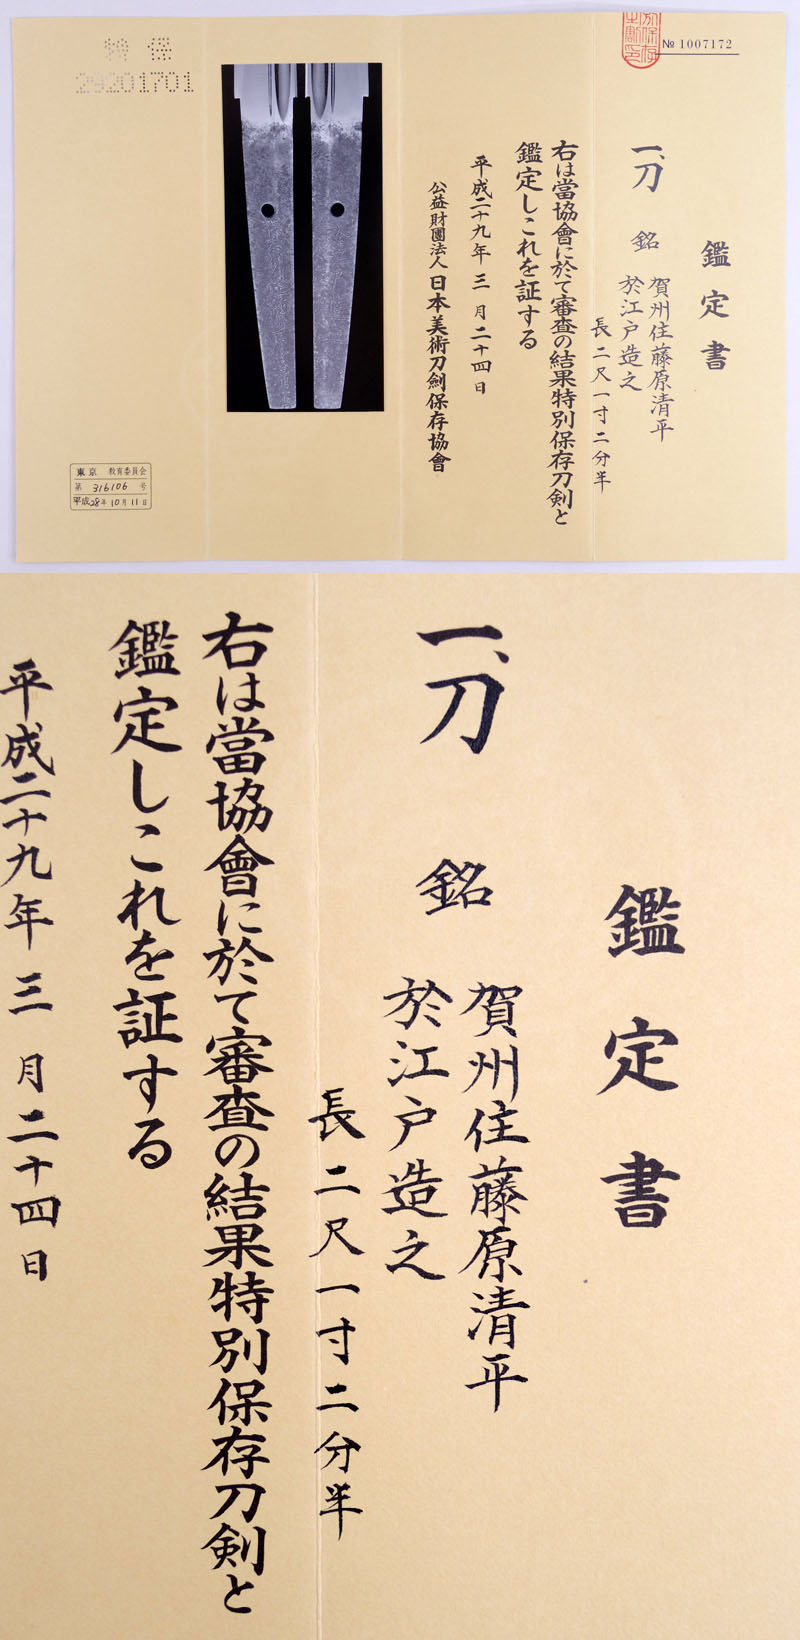 № 1007172
鑑定書
一、刀 銘 賀州住藤原清平
於江戸造之
長二尺一寸二分半
右は當協會に於て審査の結果特別保存刀剣と
鑑定しこれを証する
平成二十九年三月二十四日
公益財團法人日本美術刀劍保存協會
特保
29201701
東京 教育委員会
第 316106 号
平成28年10月11日
鑑定書
一、刀 銘 賀州住藤原清平
於江戸造之
長二尺一寸二分半
右は當協會に於て審査の結果特別保存刀剣と
鑑定しこれを証する
平成二十九年三月二十四日